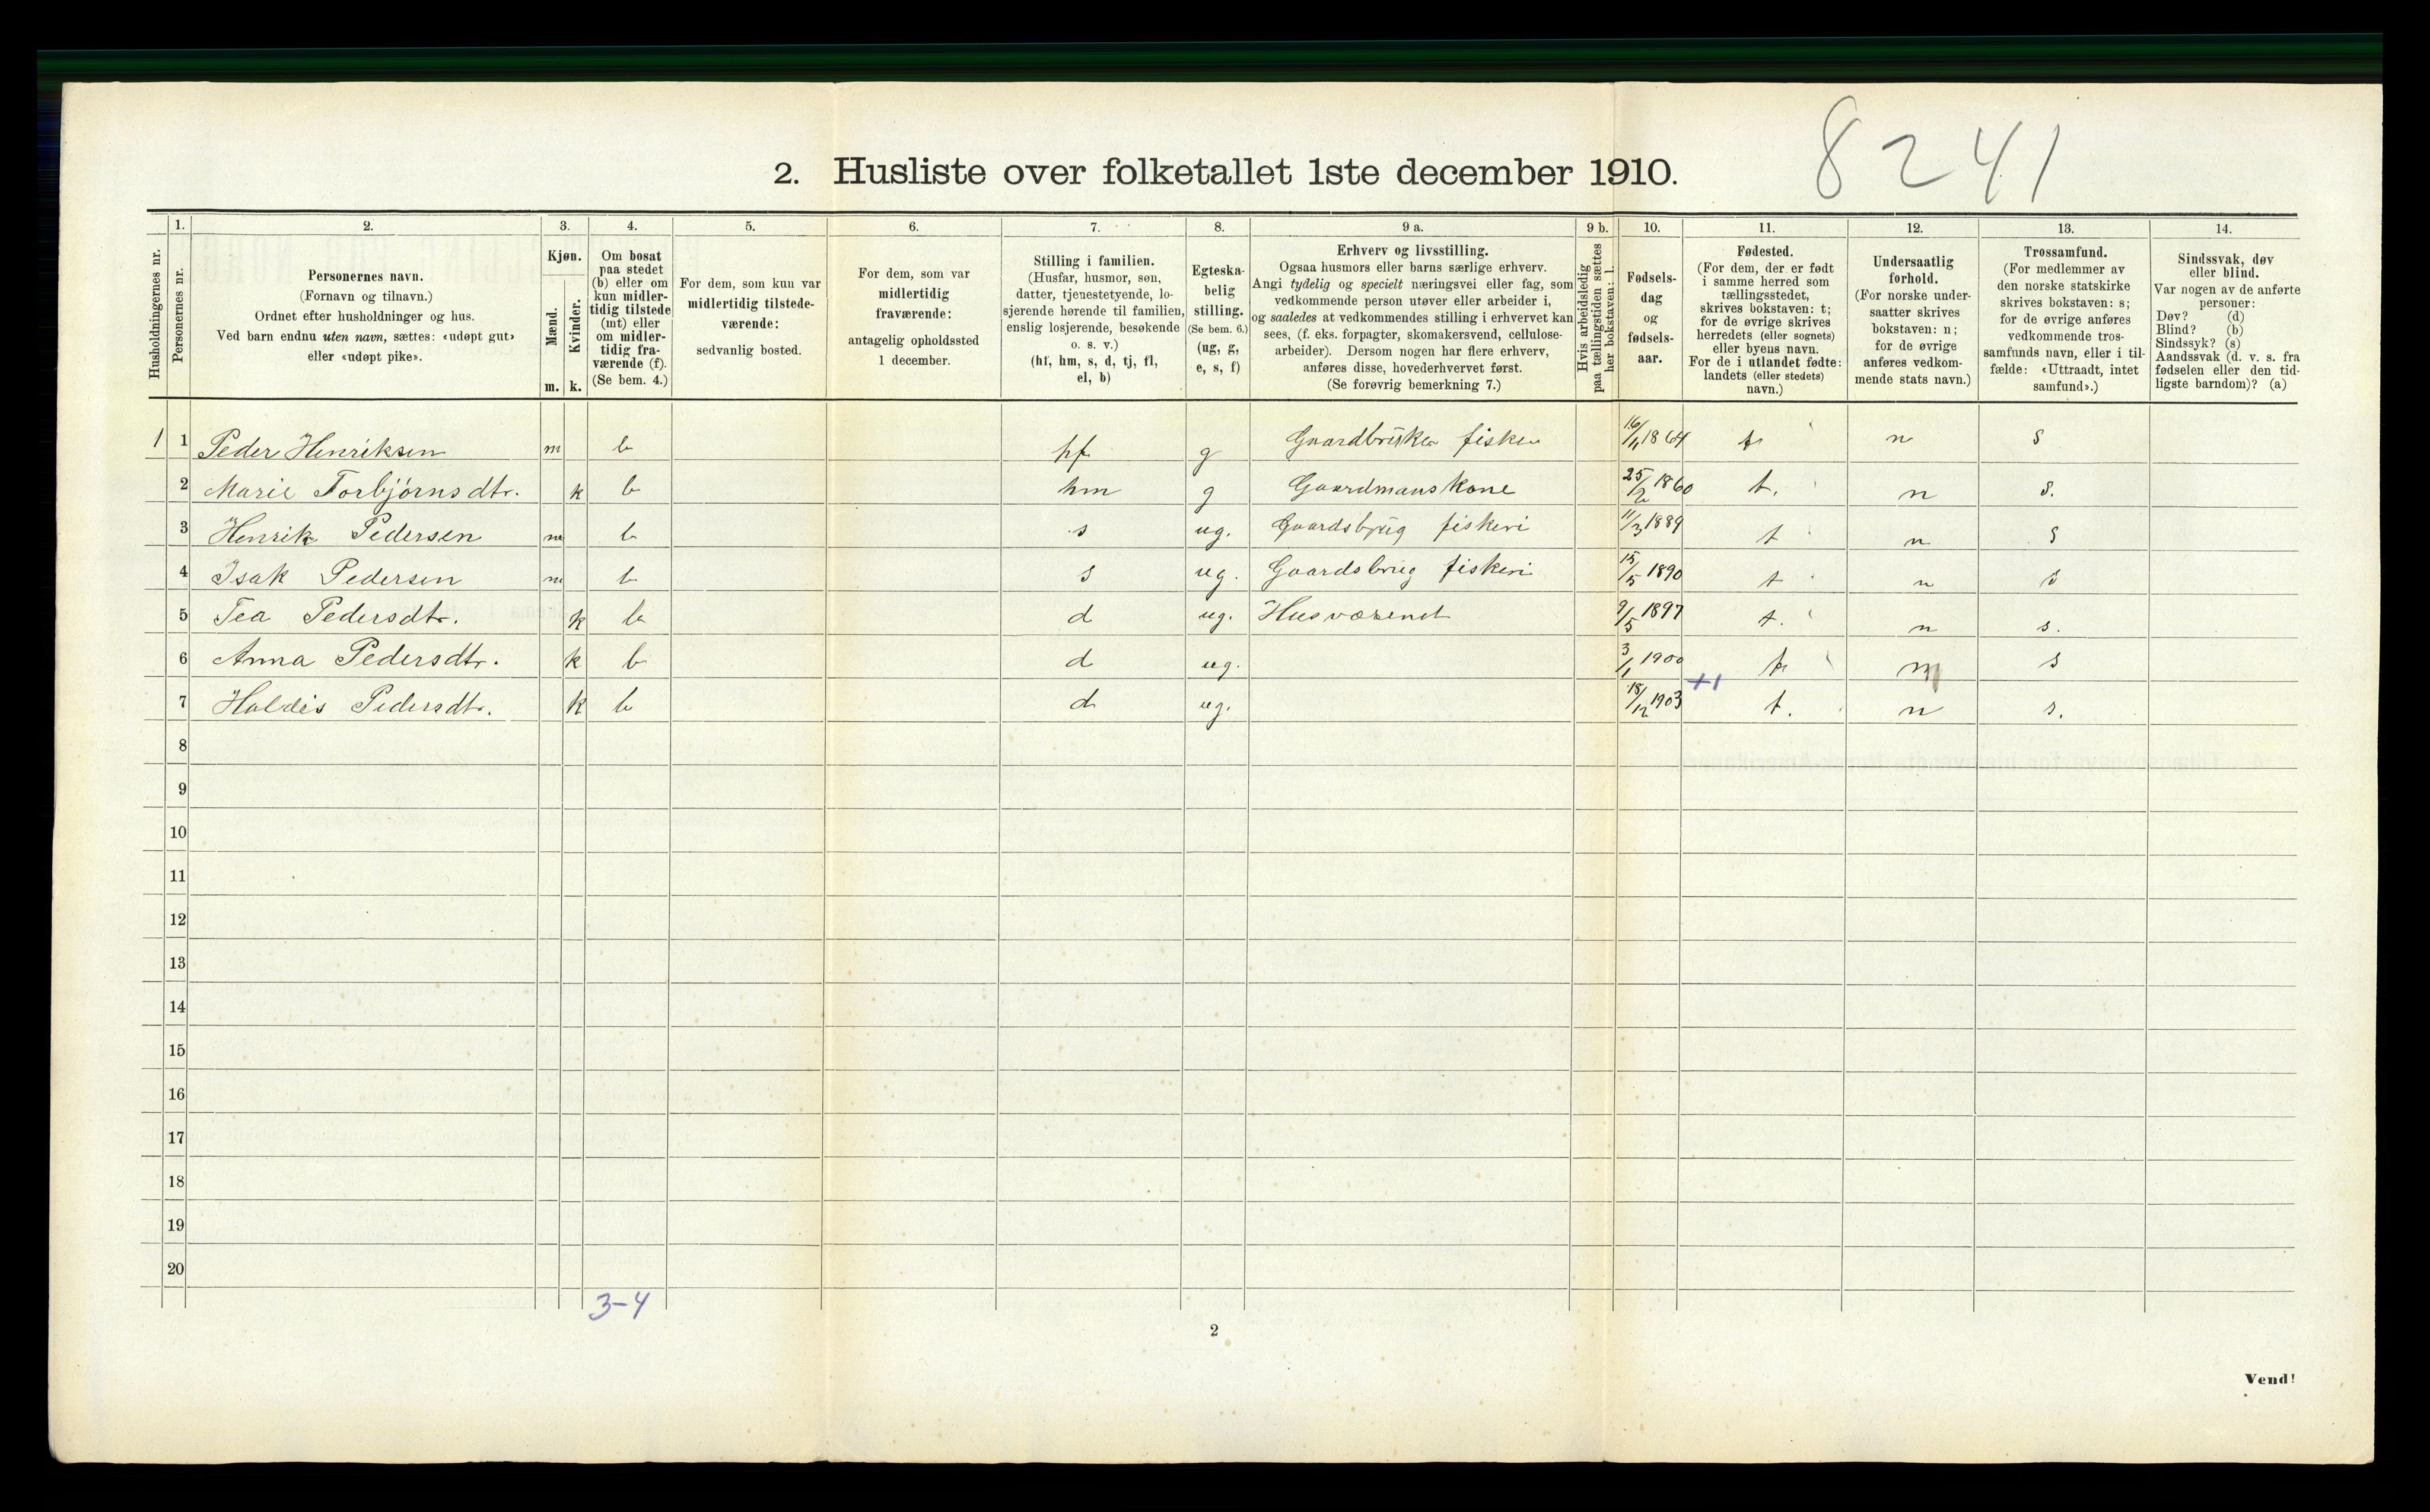 8241
2. Husliste over folketallet 1ste december 1910.
Husholdningernes nr.
1.
Personernes nr.
2.
Personernes navn.
(Fornavn og tilnavn.)
Ordnet efter husholdninger og hus.
Ved barn endnu uten navn, sættes: «udøpt gut»
eller «udøpt pike».
3.
Kjøn.
Mænd.
Kvinder.
m. k.
4.
Om bosat
paa stedet
(b) eller om
kun midler-
tidig tilstede
(mt) eller
om midler-
tidig fra-
værende (f).
(Se bem. 4.)
5.
For dem, som kun var
midlertidig tilstede-
værende:
sedvanlig bosted.
6.
For dem, som var
midlertidig
fraværende:
antagelig opholdssted
1 december.
7.
Stilling i familien.
(Husfar, husmor, søn,
datter, tjenestetyende, lo-
sjerende hørende til familien,
enslig losjerende, besøkende
o. s. v.)
(hf, hm, s, d, tj, fl,
el, b)
8.
Egteska-
belig
stilling.
(Se bem. 6.)
(ug, g,
e, s, f)
9 a.
Erhverv og livsstilling.
Ogsaa husmors eller barns særlige erhverv.
Angi tydelig og specielt næringsvei eller fag, som
vedkommende person utøver eller arbeider i,
og saaledes at vedkommendes stilling i erhvervet kan
sees, (f. eks. forpagter, skomakersvend, cellulose-
arbeider). Dersom nogen har flere erhverv,
anføres disse, hovederhvervet først.
(Se forøvrig bemerkning 7.)
9 b.
Hvis arbeidsledig
paa tællingstiden sættes
her bokstaven: l.
10.
Fødsels-
dag
og
fødsels-
aar.
11.
Fødested.
(For dem, der er født
i samme herred som
tællingsstedet,
skrives bokstaven: t;
for de øvrige skrives
herredets (eller sognets)
eller byens navn.
For de i utlandet fødte:
landets (eller stedets)
navn.)
12.
Undersaatlig
forhold.
(For norske under-
saatter skrives
bokstaven: n;
for de øvrige
anføres vedkom-
mende stats navn.)
13.
Trossamfund.
(For medlemmer av
den norske statskirke
skrives bokstaven: s;
for de øvrige anføres
vedkommende tros-
samfunds navn, eller i til-
fælde: «Uttraadt, intet
samfund».)
14.
Sindssvak, døv
eller blind.
Var nogen av de anførte
personer:
Døv? (d)
Blind? (b)
Sindssyk? (s)
Aandssvak (d. v. s. fra
fødselen eller den tid-
ligste barndom)? (a)
1 1 Peder Henriksen m b hf g Gaardbruker fisker 16/11 1864 t n s
2 Marie Torbjørnsdtr. k b hm g Gaardmanskone 25/2 1860 t. n s.
3 Henrik Pedersen m b s ug. Gaardsbrug fiskeri 11/3 1889 t n s
4 Isak Pedersen m b s ug. Gaardsbrug fiskeri 15/5 1890 t n s
5 Tea Pedersdtr. k b d ug. Husværend 9/5 1897 t. n s.
6 Anna Pedersdtr. k b d ug. 3/1 1900 t n s
+1
7 Haldis Pedersdtr. k b d ug. 18/12 1903 t. n s.
8
9
10
11
12
13
14
15
16
17
18
19
20
3-4
2
Vend!